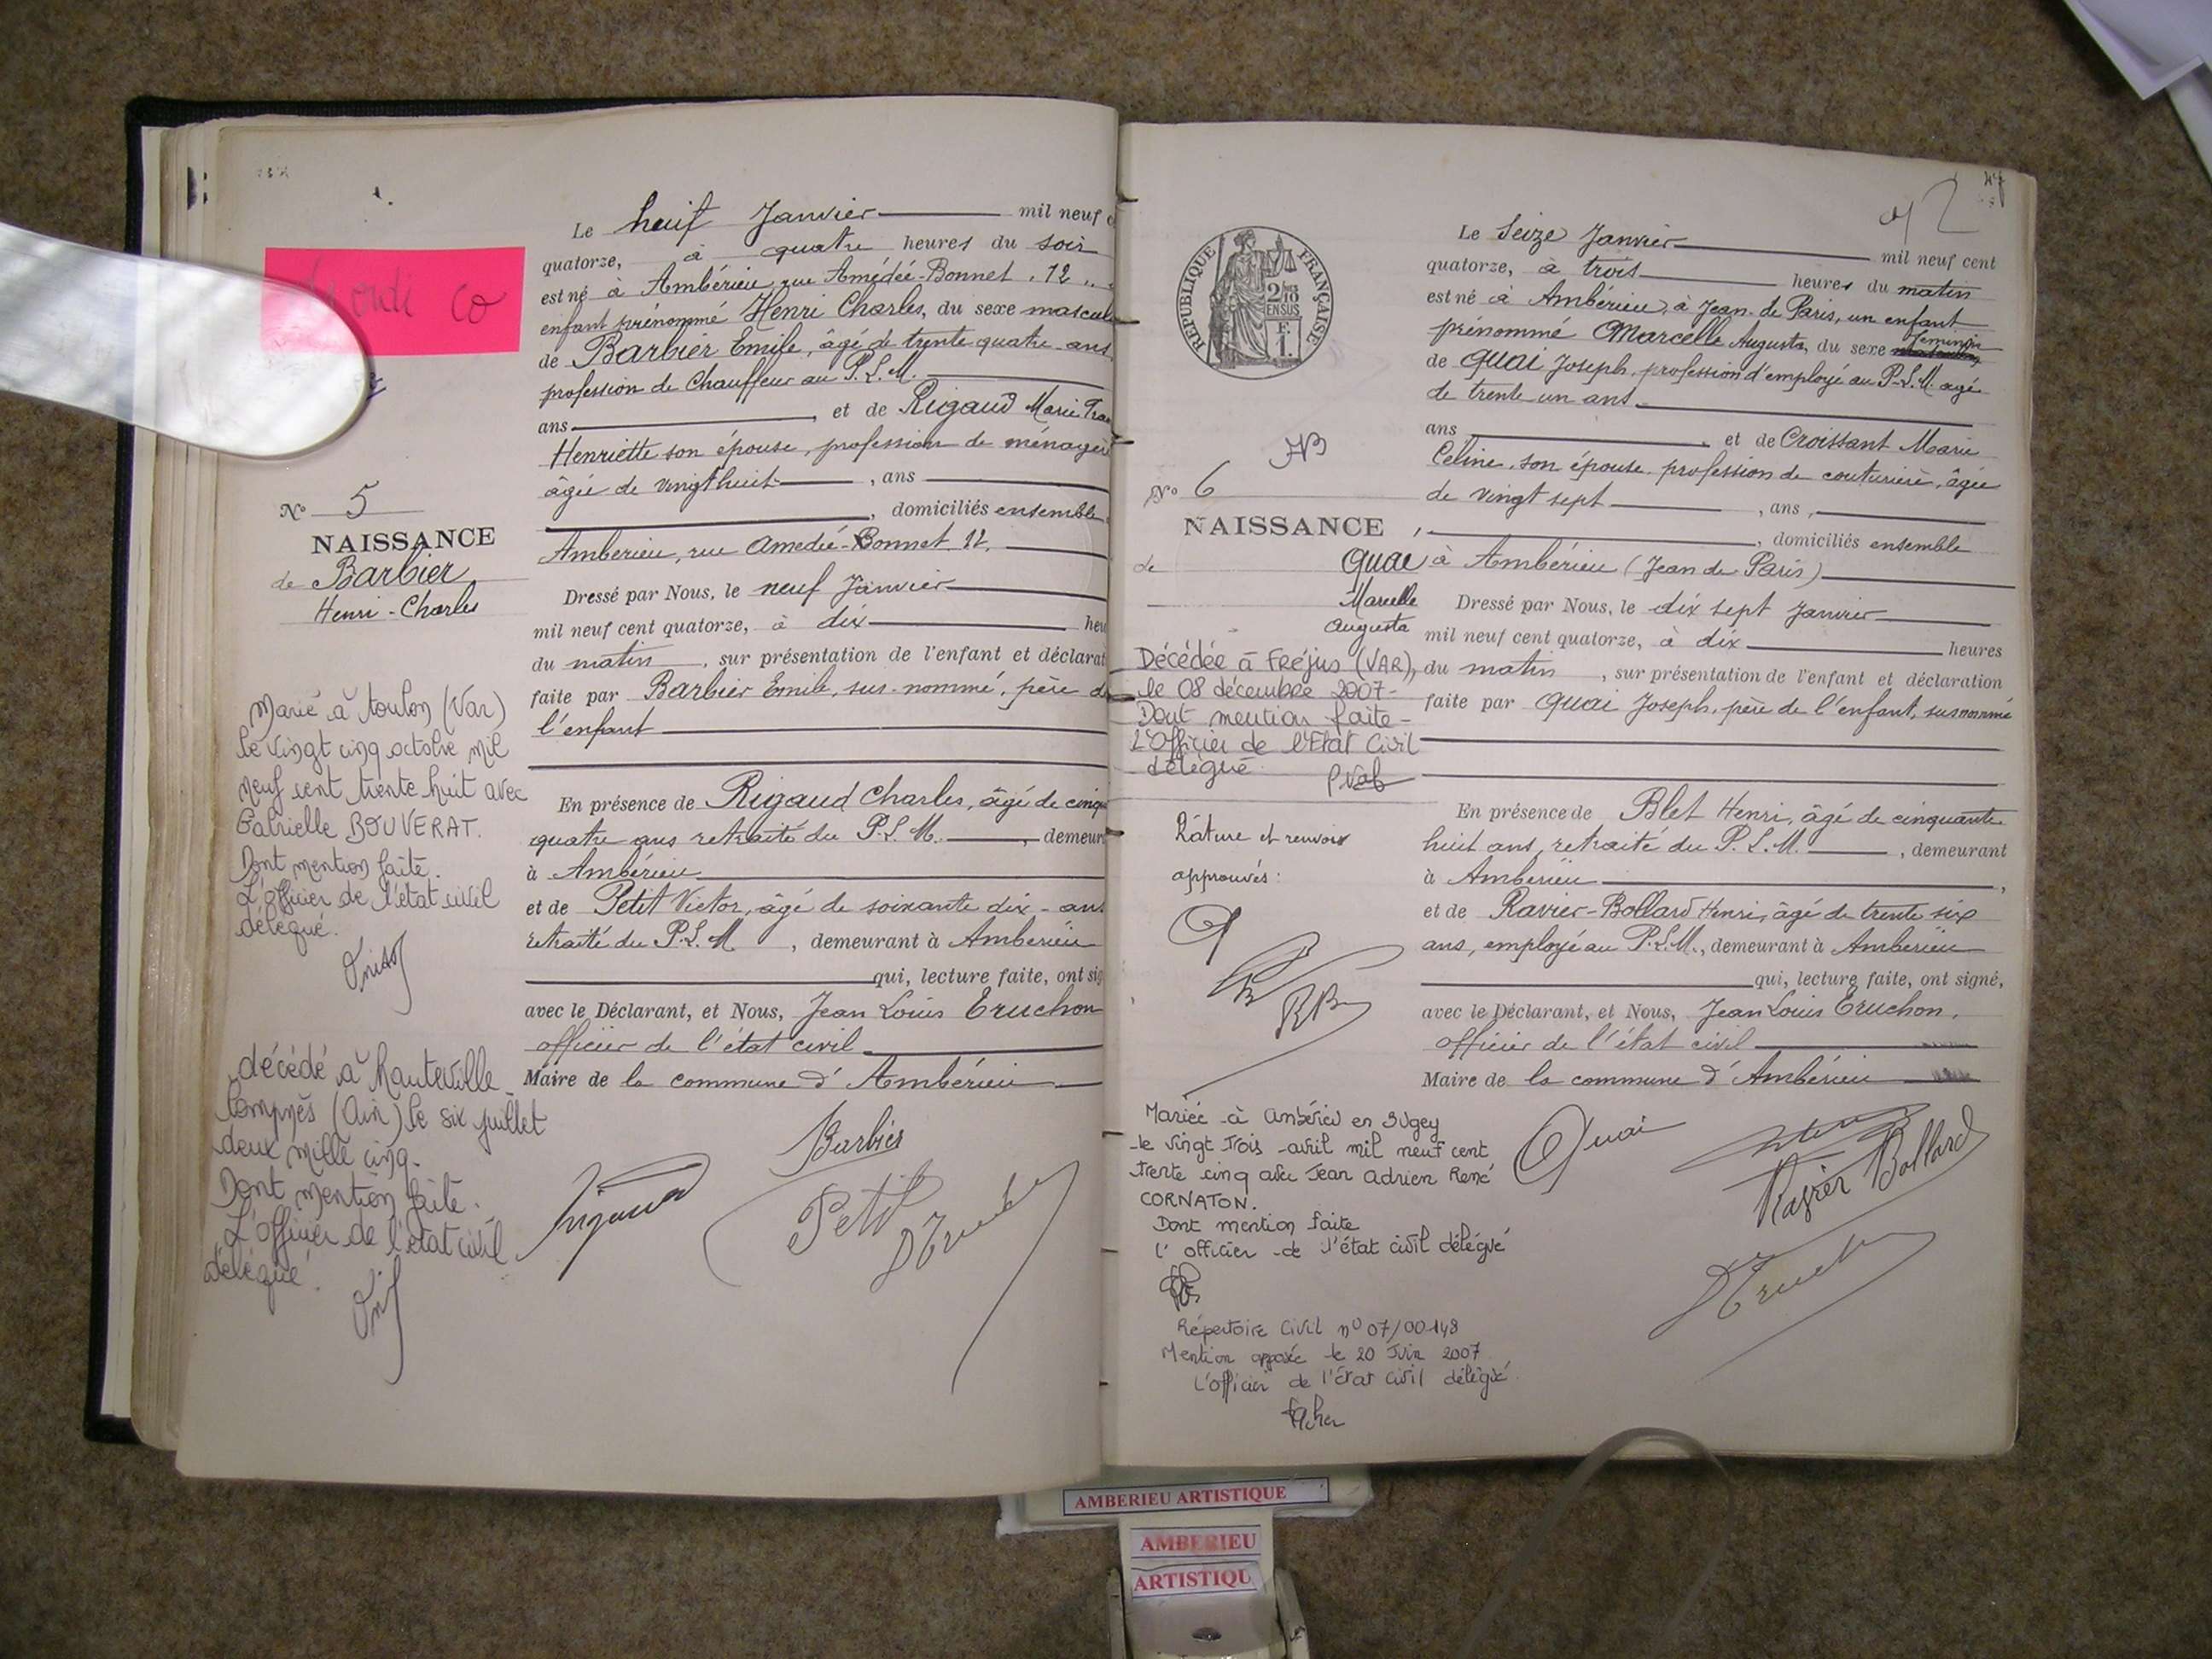 Le huit Janvier mil neuf
quatorze, à quatre heures du soir
est né à Ambérieu, rue Amédée-Bonnet, 12
enfant prénommé Henri Charles, du sexe mascul
de Barbier Emile, âgé de trente quatre ans
profession de Chauffeur au P.L.M.
ans, et de Rigaud Marie Fran
Henriette son épouse, profession de ménagère
âgée de vingt huit, ans
, domiciliés ensemble
Ambérieu, rue Amédée-Bonnet 12,
Dressé par Nous, le neuf Janvier
mil neuf cent quatorze, à dix heu
du matin, sur présentation de l'enfant et déclarat
faite par Barbier Emile, sus-nommé, père de
l'enfant
En présence de Rigaud Charles, âgé de cinqu
quatre ans retraité du P.L.M., demeur
à Ambérieu
et de Petit Victor, âgé de soixante dix-ans
retraité du P.L.M, demeurant à Ambérieu
qui, lecture faite, ont sig
avec le Déclarant, et Nous, Jean Louis Eruchon
officier de l'état civil
Maire de la commune d'Ambérieu
Rigaud
Barbier
Petit
N° 5
NAISSANCE
de Barbier
Henri-Charles
Marié à toulon (Var)
le vingt cinq octobre mil
neuf cent trente huit avec
Gabrielle BOUVERAT.
Dont mention faite.
L'officier de l'état civil
délégué.
décédé à Hauteville
Lompnès (Ain) le six juillet
deux mille cinq.
Dont mention faite.
L'officier de l'état civil
délégué.
REPUBLIQUE FRANÇAISE
2/10 EN SUS
F.
1.
2
Le Seize Janvier mil neuf cent
quatorze, à trois heures du matin
est né à Ambérieu, à Jean de Paris, un enfant
prénommé Marcelle Augusta, du sexe féminin
de Quai Joseph, profession d'employé au P.L.M. agé
de trente un ans
ans, et de Croissant Marie
Céline, son épouse, profession de couturière, âgée
de vingt sept, ans,
, domiciliés ensemble
à Ambérieu (Jean de Paris)
Dressé par Nous, le dix sept Janvier
mil neuf cent quatorze, à dix heures
du matin, sur présentation de l'enfant et déclaration
faite par Quai Joseph, père de l'enfant, susnommé
En présence de Blet Henri, âgé de cinquante
huit ans, retraité du P.L.M., demeurant
à Ambérieu,
et de Ravier-Bollard Henri, âgé de trente six
ans, employé au P.L.M., demeurant à Ambérieu
qui, lecture faite, ont signé,
avec le Déclarant, et Nous, Jean Louis Eruchon,
officier de l'état civil
Maire de la commune d'Ambérieu
Quai
Ravier Bollard
N° 6
NAISSANCE
de Quai
Marcelle
Augusta
Décédée à Fréjus (VAR),
le 08 décembre 2007-
Dont mention faite-
L'Officier de l'Etat Civil
délégué
Râture et renvois
approuvés:
RB
Mariée à Ambérieu en Bugey
le vingt trois avril mil neuf cent
trente cinq avec Jean Adrien René
CORNATON.
Dont mention faite
l'officier de l'état civil délégué
Répertoire Civil n° 07/00148
Mention apposée le 20 Juin 2007
L'officier de l'état civil délégué.
AMBERIEU ARTISTIQUE
AMBERIEU
ARTISTIQU